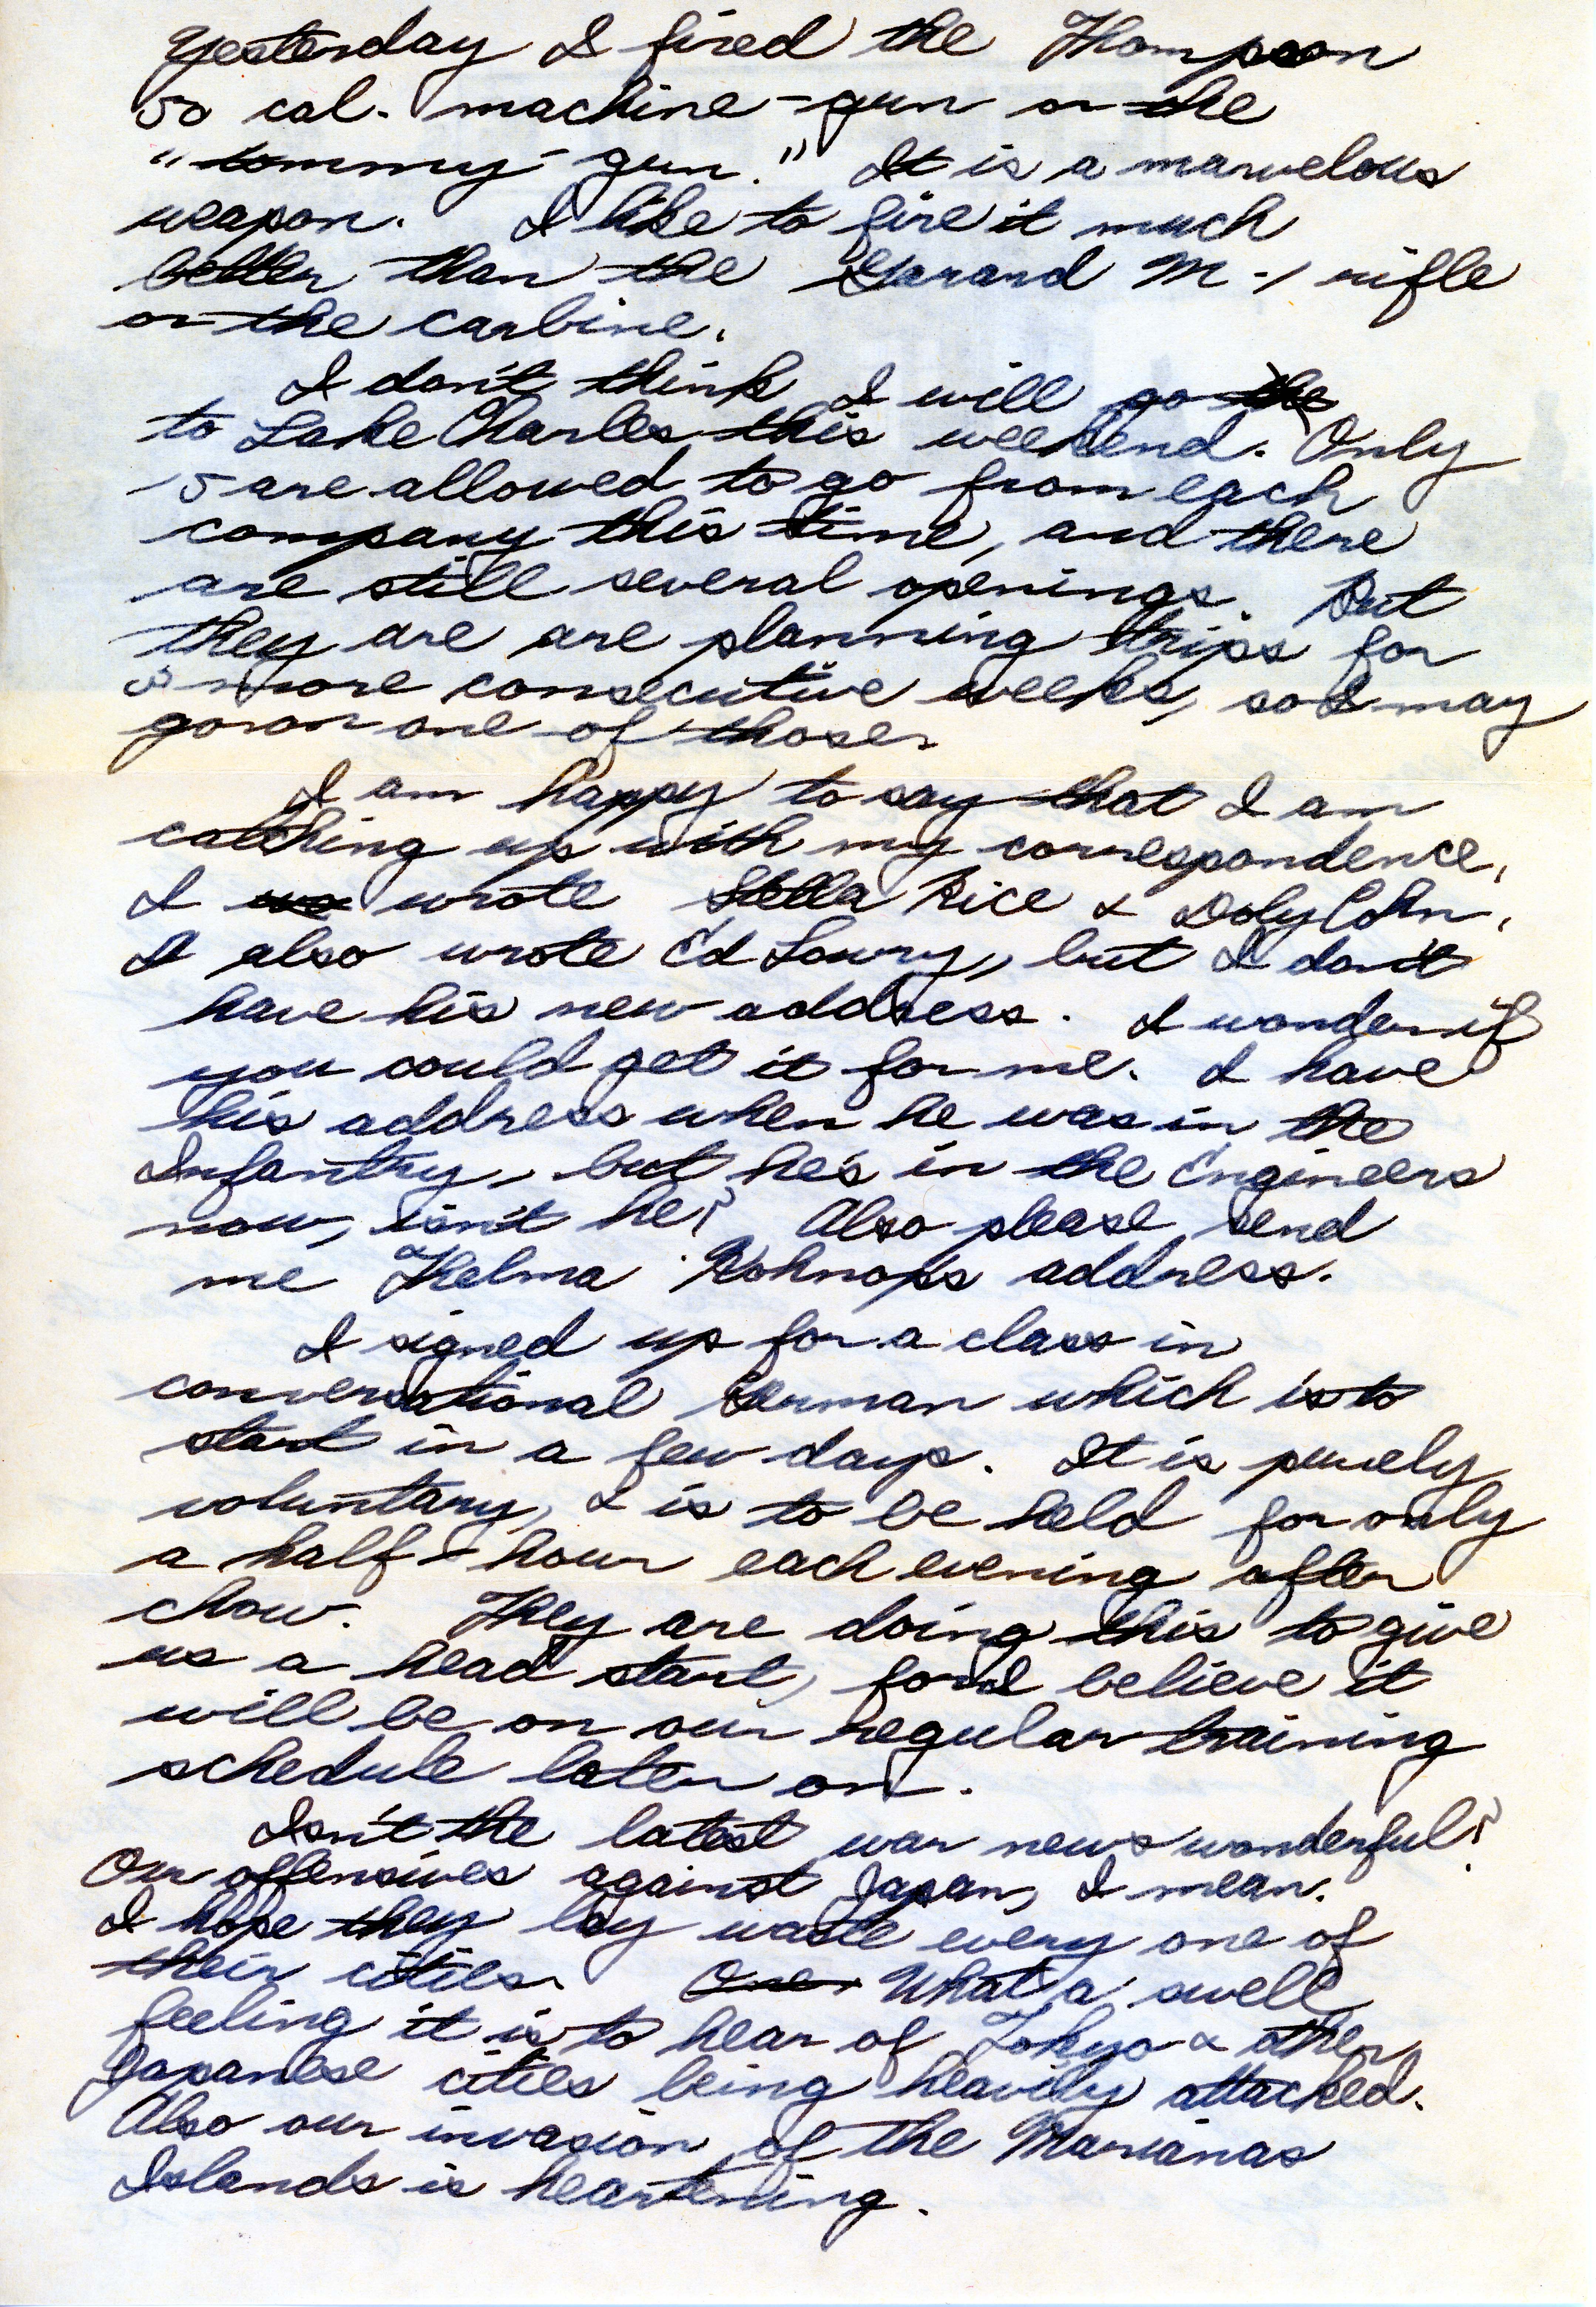 Yesterday I fired the Thompson
50 cal. machine-gun or the
"tommy-gun." It is a marvelous
weapon. I like to fire it much
better than the Garand M-1 rifle
or the carbine.
I don't think I will go the
to Lake Charles this weekend. Only
15 are allowed to go from each
company this time, and there
are still several openings. But
they are are planning trips for
5 more consecutive weeks, so I may
go on one of those.
I am happy to say that I am
catching up with my correspondence.
I wrote Stella Rice &
I also wrote Ed Lowry, but I don't
have his new address. I wonder if
you could get it for me. I have
his address when he was in the
Infantry, but he's in the Engineers
now, isn't he? Also please send
me Thelma address.
I signed up for a class in
conversational German which is to
start in a few days. It is purely
voluntary, & is to be held for only
a half-hour each evening after
chow. They are doing this to give
us a head start, for I believe it
will be on our regular training
schedule later on.
Isn't the latest war news wonderful?
Our offensives against Japan, I mean.
I hope they lay waste every one of
their cities. What a swell
feeling it is to hear of Tokyo & other
Japanese cities being heavily attacked.
Also our invasion of the Marianas
Islands is heartening.